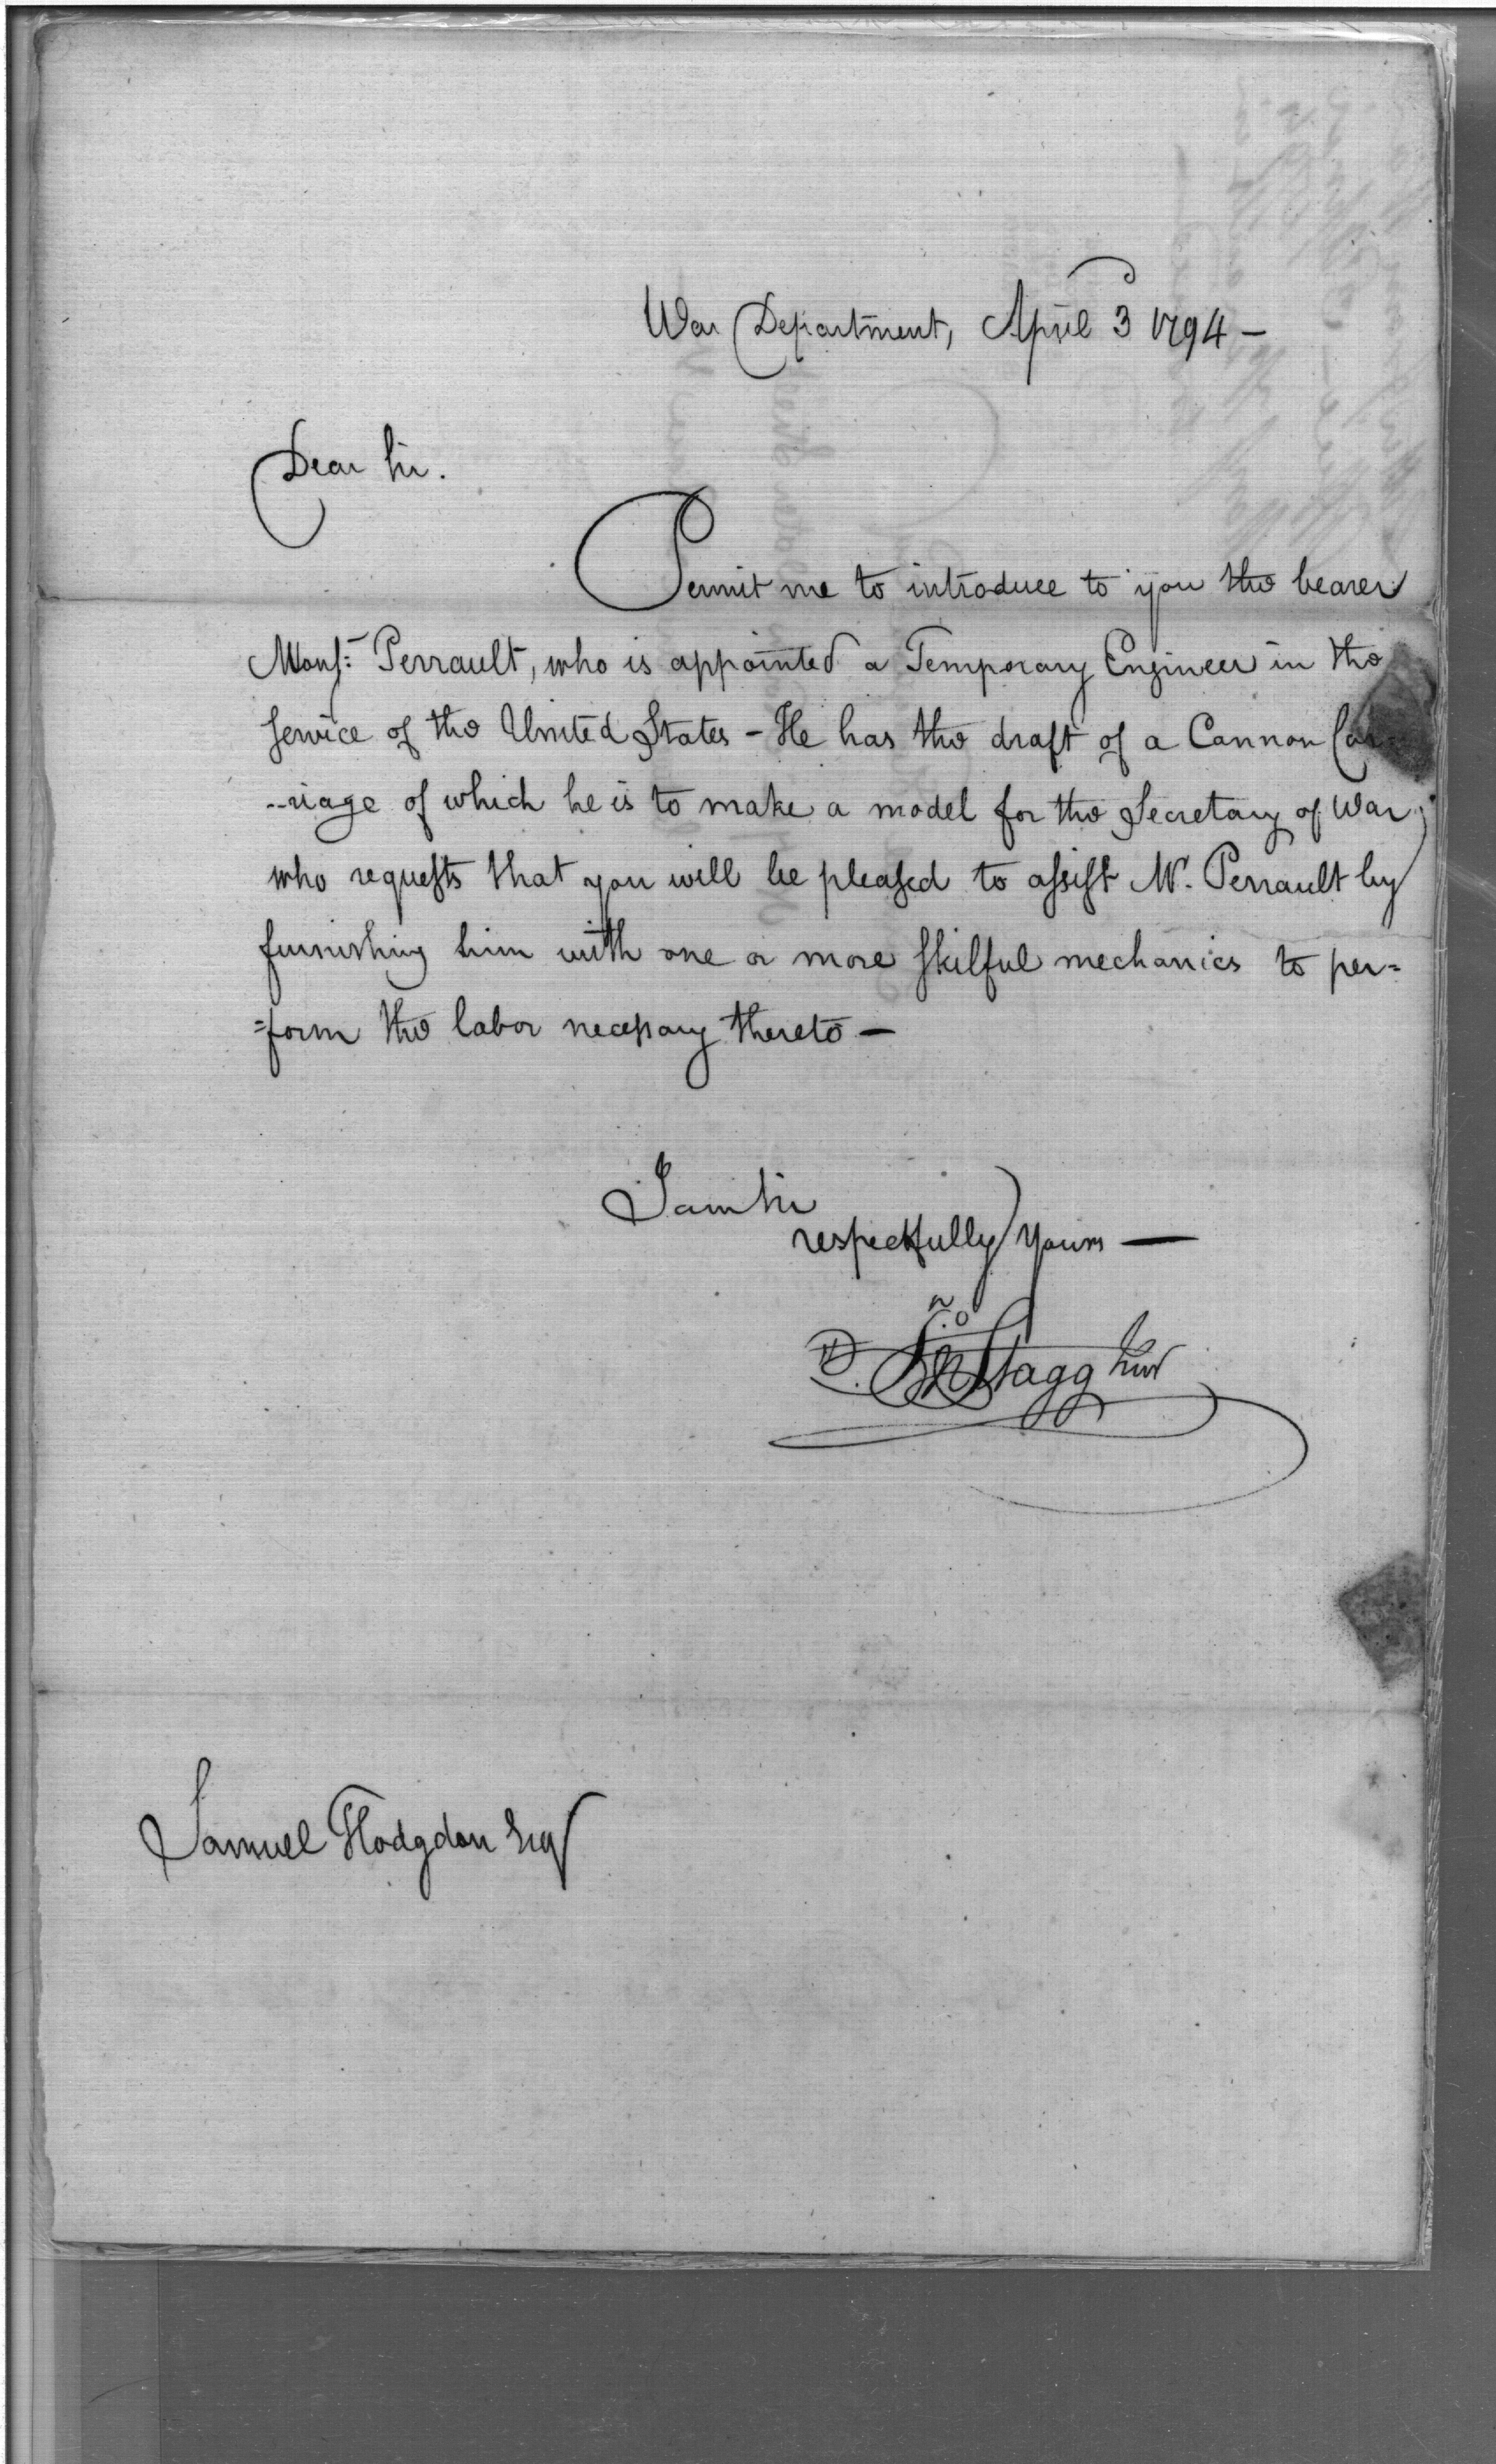 War Department, April 3 1794 -
Dear Sir.
Permit me to introduce to you the bearer
Monsr. Perrault, who is appointed a Temporary Engineer in the
service of the United States - He has the draft of a Cannon Car-
--riage of which he is to make a model for the Secretary of War,
who requests that you will be pleased to assist Mr. Perrault by
furnishing him with one or more skilful mechanics to per=
=form the labor necessary thereto -
I am Sir
respectfully yours -
Jno Stagg Junr
Samuel Hodgdon Esqr